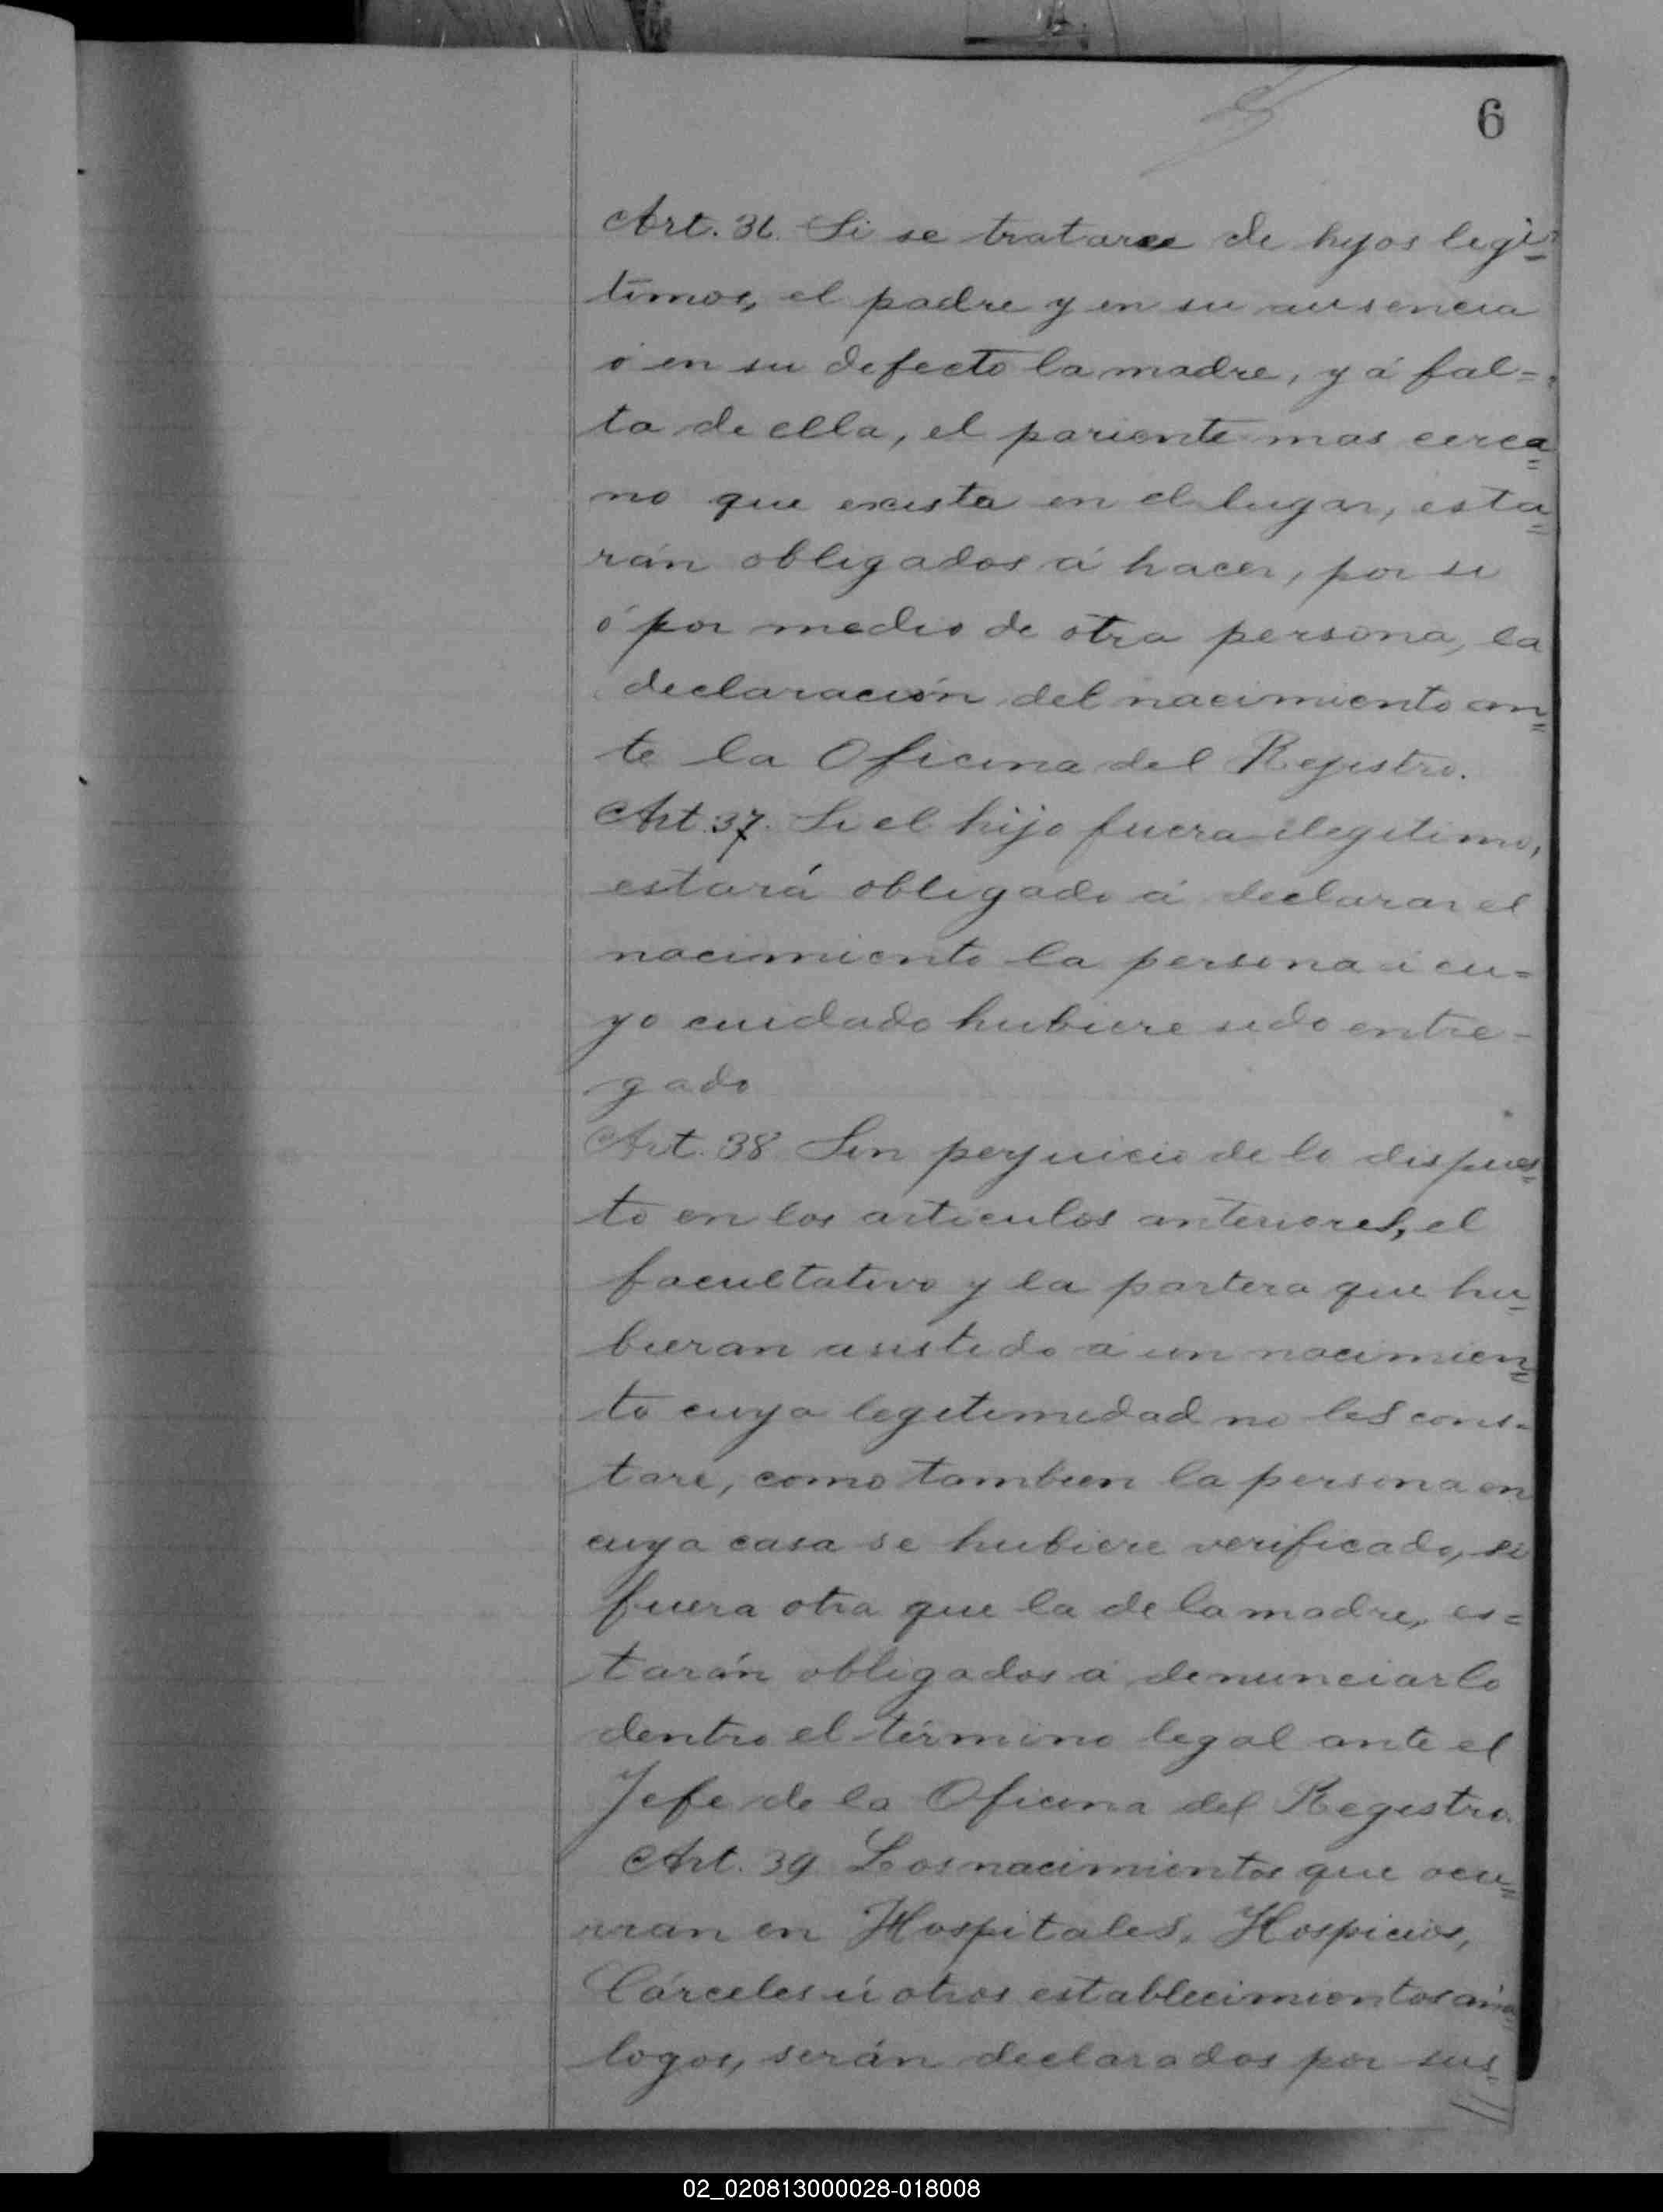 6
Art. 36. Si se tratare de hijos legi-
timos, el padre y en su ausencia
ó en su defecto la madre, y á fal=
ta de ella, el pariente mas cerca=
no que exista en el lugar, esta=
rán obligados á hacer, por si
ó por medio de otra persona, la
declaración del nacimiento an=
te la Oficina del Registro.
Art. 37. Si el hijo fuera ilegitimo,
estará obligado á declarar el
nacimiento la persona á cu=
yo cuidado hubiere sido entre-
gado
Art. 38 Sin perjuicio de lo dispues=
to en los articulos anteriores, el
facultativo y la partera que hu=
bieran asistido á un nacimien=
to cuya legitimidad no les cons-
tare, como tambien la persona en
cuya casa se hubiere verificado, si
fuera otra que la de la madre, es=
tarán obligados á denunciarlo
dentro el término legal ante el
Jefe de la Oficina del Registro.
Art. 39 Los nacimientos que ocu=
rran en Hospitales, Hospicios,
Cárceles ú otros establecimientos aná
logos, serán declarados por sus
02_020813000028-018008